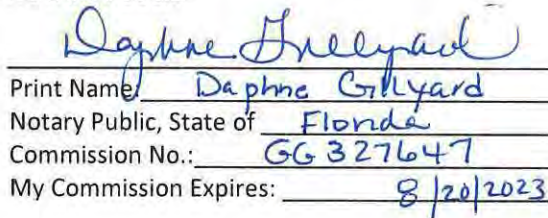 Daphne Gillyard
Print Name: Daphne Gillyard
Notary Public, State of Florida
Commission No.: GG 327647
My Commission Expires: 8/20/2023